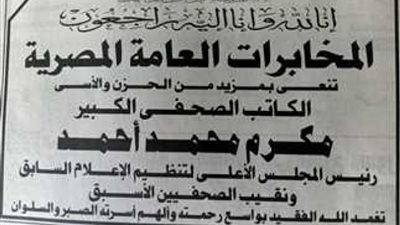 إنا لله وإنا إليه راجعون
المخابرات العامة المصرية
تنعى بمزيد من الحزن والأسى
الكاتب الصحفى الكبير
مكرم محمد أحمد
رئيس المجلس الأعلى لتنظيم الإعلام السابق
ونقيب الصحفيين الأسبق
تغمد الله الفقيد بواسع رحمته وألهم أسرته الصبر والسلوان